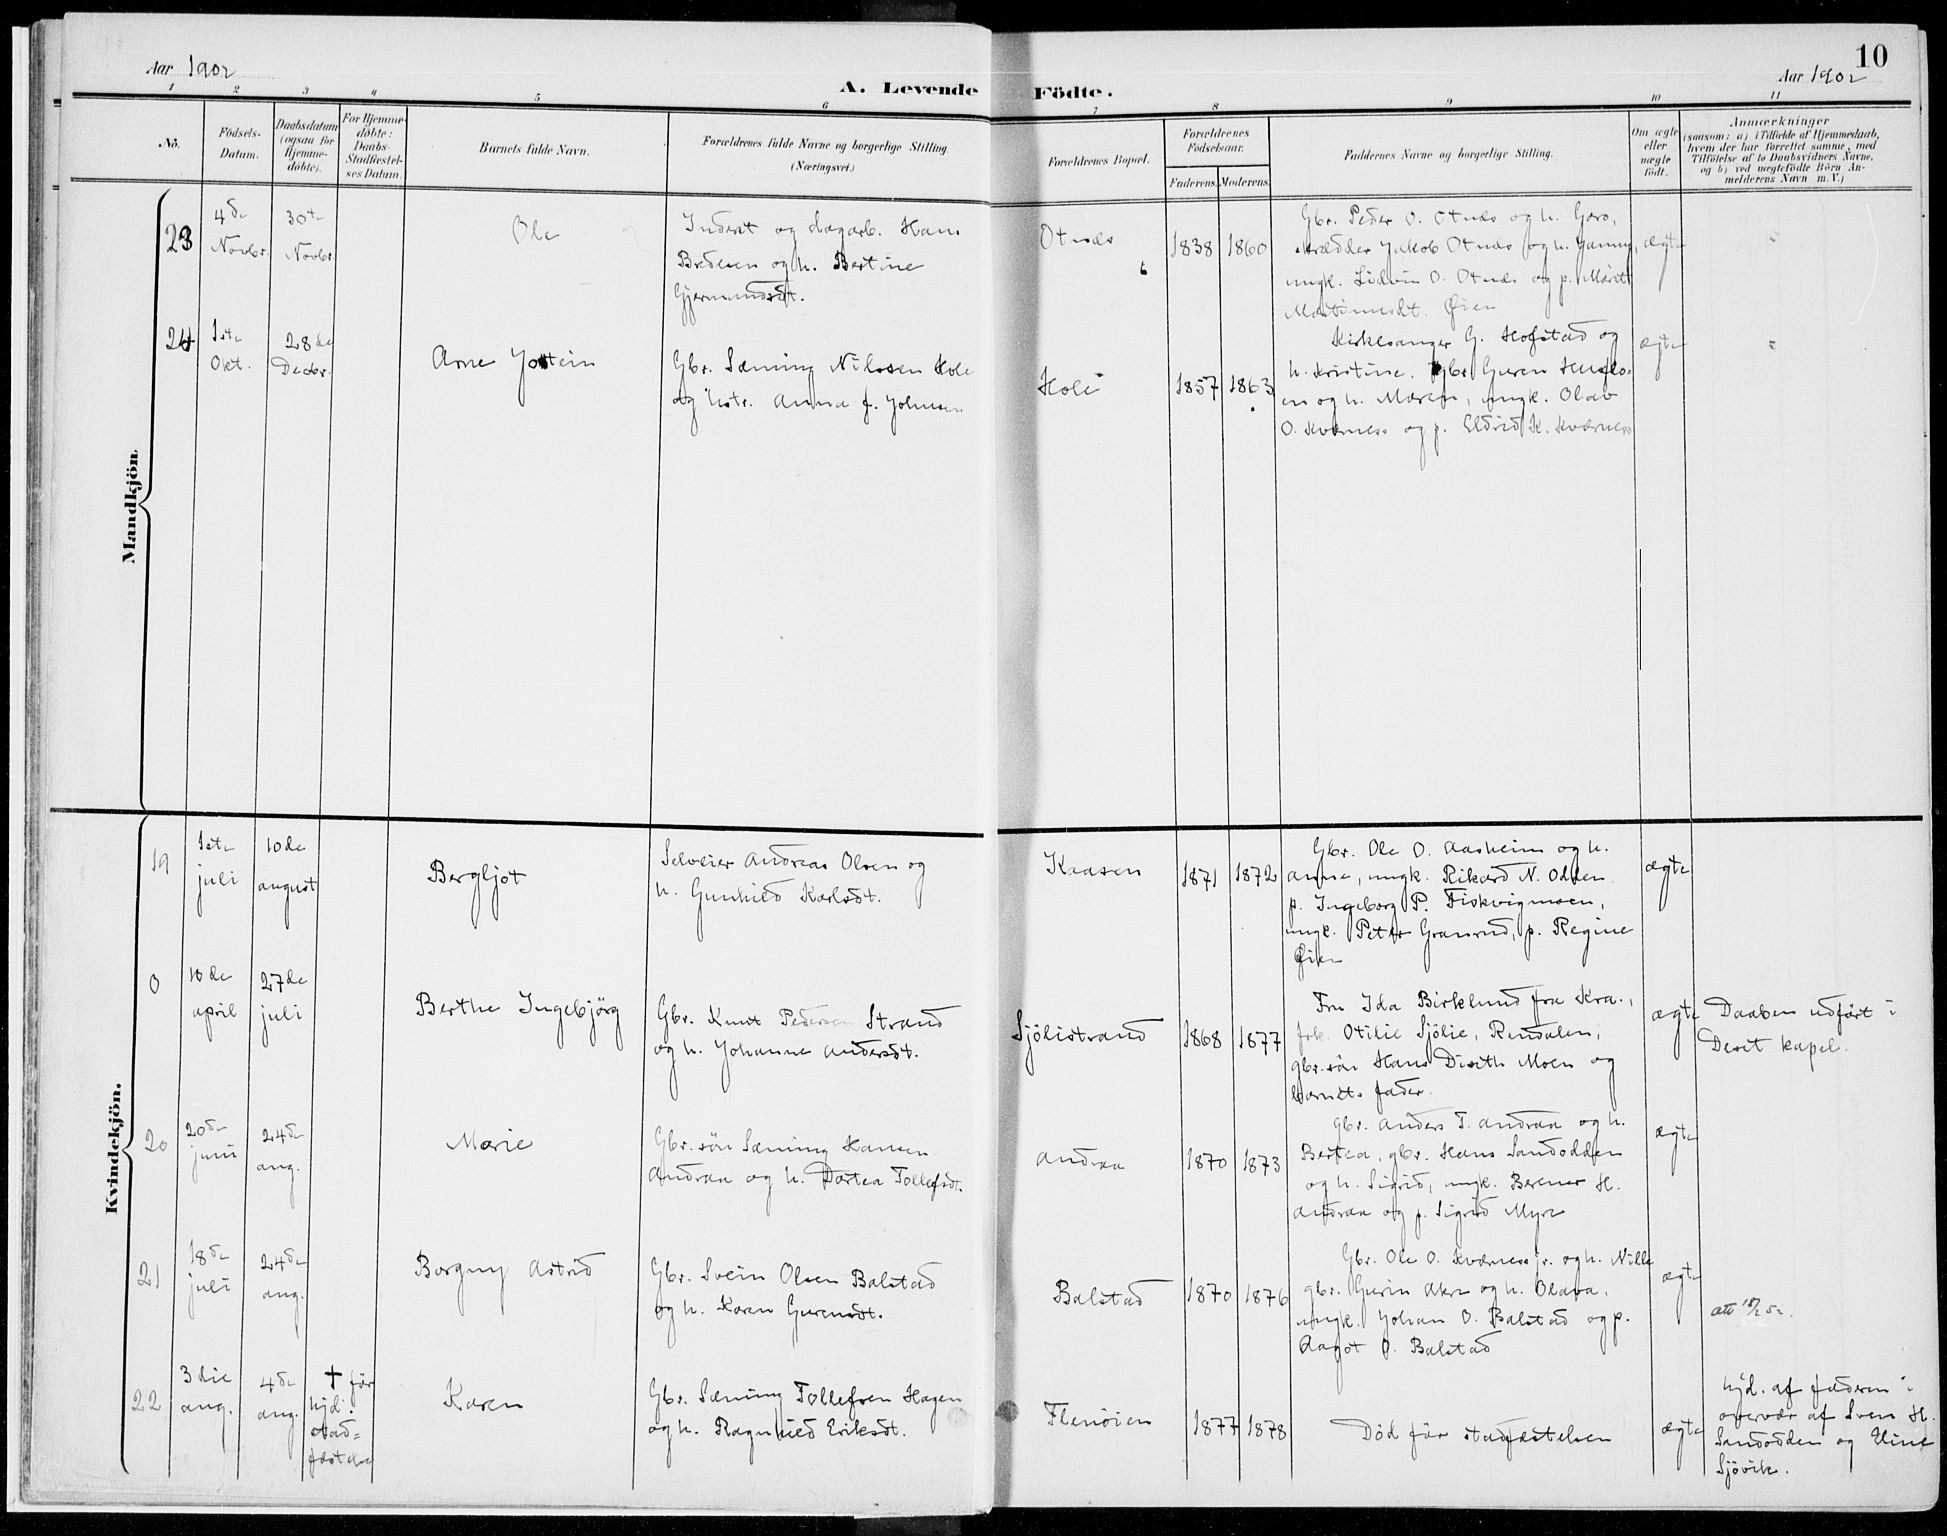 10
Aar 1902
Aar 1902
A. Levende Födte.
1 2 3 4 5 6 7 8 9 10 11
No.
Födsels-
Datum.
Daabsdatum
(ogsaa for
Hjemme-
döbte).
For Hjemme-
döbte:
Daabs-
Stadfæstel-
ses Datum.
Barnets fulde Navn.
Forældrenes fulde Navne og borgerlige Stilling.
(Næringsvei.)
Forældrenes Bopæl.
Forældrenes
Födselsaar.
Faderens. Moderens.
Faddernes Navne og borgerlige Stilling.
Om ægte
eller
uægte
födt.
Anmærkninger
(saasom: a) i Tilfælde af Hjemmedaab,
hvem der har forrettet samme, med
Tilföielse af to Daabsvidners Navne,
og b) ved uægtefödte Börn An-
melderens Navn m. V.)
Mandkjön
23
4de
Novbr.
30te
Novbr.
Ole
Inderst og dagarb. Hans
Bredesen og h. Bertine
Gjermundsdt.
Otnæs
1838
1860
Gbr. Peder O. Otnæs og h. Goro,
skrædder Jakob Otnæs og h. Janny,
ungk. Ludvin O. Otnæs og p. Marit
Martinusdt. Øien
ægte
"
24
1ste
Okt.
28de
Decbr.
Arne Jostein
Gbr. Sæming Nilssen Hole
og hstr. Anna f. Johnsen
Hole
1857
1863
Kirkesanger G. Hofstad og
h. Kristine, gbr. Guren Huslo-
en og h. Maren, ungk. Olav
O. Kværness og p. Eldrid K. Kværness
ægte
"
Kvindekjön.
19
1ste
juli
10de
august
Bergljot
Selveier Andreas Olsen og
h. Gunhild Karlsdt.
Kaasen
1871
1872
Gbr. Ole O. Aasheim og h.
Anne, ungk. Rikard N. Odden
p. Ingeborg P. Fiskvigmoen,
ungk. Peter Granrud, p. Regine
Øien
ægte
0
10de
april
27de
juli
Berthe Ingebjörg
Gbr. Knut Pedersen Strand
og h. Johanne Andersdt.
Sjölistrand
1868
1877
Fru Ida Birklund fra Kra.,
frk. Otilie Sjölie, Rendalen,
gbr.sön Hans Diseth Moen og
barnets fader.
ægte
Daaben udfört i
Deset kapel.
20
20de
juni
24de
aug.
Marie
Gbr.sön Sæming Hansen
Andraa og h. Dortea Tollefsdt.
Andraa
1870
1873
Gbr. Anders T. Andraa og h.
Bertea, gbr. Hans Sandodden
og h. Sigrid, ungk. Berner H.
Andraa og p. Sigrid Myre
ægte
21
18de
juli
24de
aug.
Borgny Astrid
Gbr. Svein Olsen Balstad
og h. Karen Gurensdt.
Balstad
1870
1876
Gbr. Ole O. Kværness jr. og h. Nille
gbr. Gurin Akre og h. Olava,
ungk. Johan O. Balstad og p.
Aagot O. Balstad
ægte
22
3die
aug.
4de
aug.
† för
hjd.
stad=
fæstelse
Karen
Gbr. Sæming Tollefsen Hagen
og h. Ragnhild Eriksdt.
Flenöien
1877
1878
Död för stadfæstelsen
ægte
hjd. af faderen i
overvær af Sven H.
Sandodden og Eline
Sjövik.